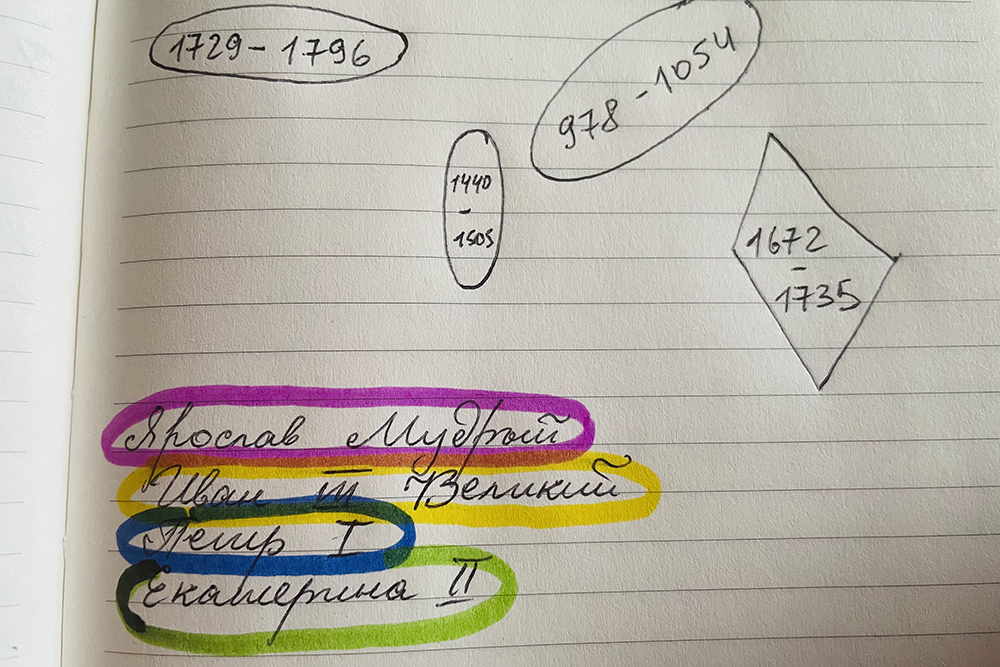 1729 - 1796
978 - 1054
1440
-
1505
1672
-
1735
Ярослав Мудрый
Иван III Великий
Петр I
Екатерина II